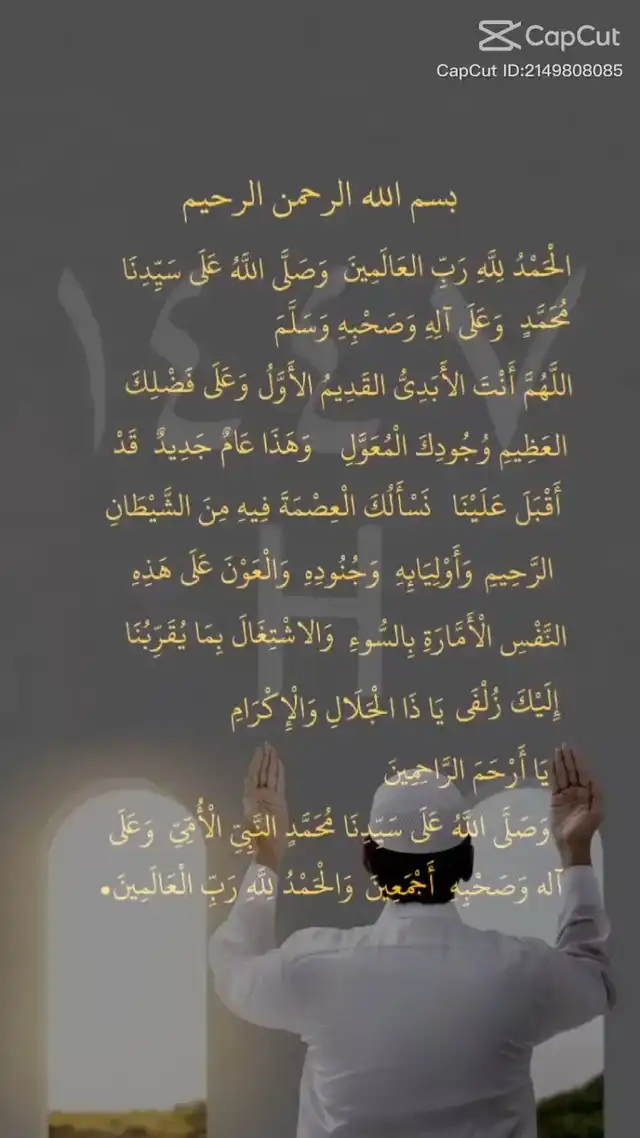 CapCut
CapCut ID:2149808085
بسم الله الرحمن الرحيم
الْحَمْدُ لِلَّهِ رَبِّ العَالَمِينَ وَصَلَّى اللَّهُ عَلَى سَيِّدِنَا
مُحَمَّدٍ وَعَلَى آلِهِ وَصَحْبِهِ وَسَلَّمَ
اللَّهُمَّ أَنْتَ الأَبَدِىُّ القَدِيمُ الأَوَّلُ وَعَلَى فَضْلِكَ
العَظِيمِ وُجُودِكَ الْمُعَوَّلِ وَهَذَا عَامٌ جَدِيدٌ قَدْ
أَقْبَلَ عَلَيْنَا نَسْأَلُكَ الْعِصْمَةَ فِيهِ مِنَ الشَّيْطَانِ
الرَّحِيمِ وَأَوْلِيَائِهِ وَجُنُودِهِ وَالْعَوْنَ عَلَى هَذِهِ
النَّفْسِ الْأَمَّارَةِ بِالسُّوءِ وَالاشْتِغَالَ بِمَا يُقَرِّبُنَا
إِلَيْكَ زُلْفَى يَا ذَا الْجَلَالِ وَالْإِكْرَامِ
يَا أَرْحَمَ الرَّاحِمِينَ
وَصَلَّى اللَّهُ عَلَى سَيِّدِنَا مُحَمَّدٍ النَّبِيِّ الْأُمِّيِّ وَعَلَى
آله وَصَحْبِهِ أَجْمَعِينَ وَالْحَمْدُ لِلَّهِ رَبِّ الْعَالَمِينَ.
١٤٤٧
H